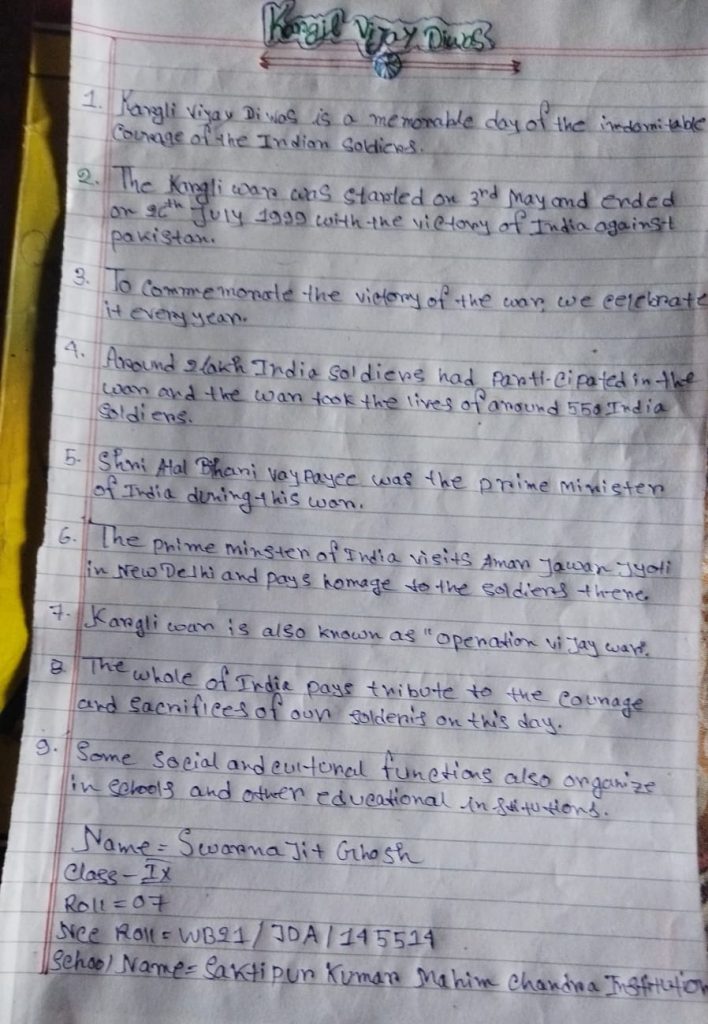 Kargil Vijay Diwas
1. Kargli Vijay Diwas is a memorable day of the indomitable
Courage of the Indian Soldiers.
2. The Kargli war was started on 3rd May and ended
on 26th July 1999 with the victory of India against
pakistan.
3. To Commemorate the victory of the war, we celebrate
it every year.
4. Around 2 lakh India soldiers had Parti-cipated in the
war and the war took the lives of around 550 India
Soldiers.
5. Shri Atal Bhari vaypayee was the prime Minister
of India during this war.
6. The prime minster of India visits Amar Jawan Jyoti
in New Delhi and pays homage to the soldiers there.
7. Kargli war is also known as "operation vijay war".
8 The whole of India pays tribute to the courage
and sacrifices of our solderis on this day.
9. Some social and cultural functions also organize
in schools and other educational institutions.
Name = Swarnajit Ghosh
Class - IX
Roll = 07
Ncc Roll = WB21/JDA/145514
School Name = Saktipur Kumar Mahim Chandra Institution